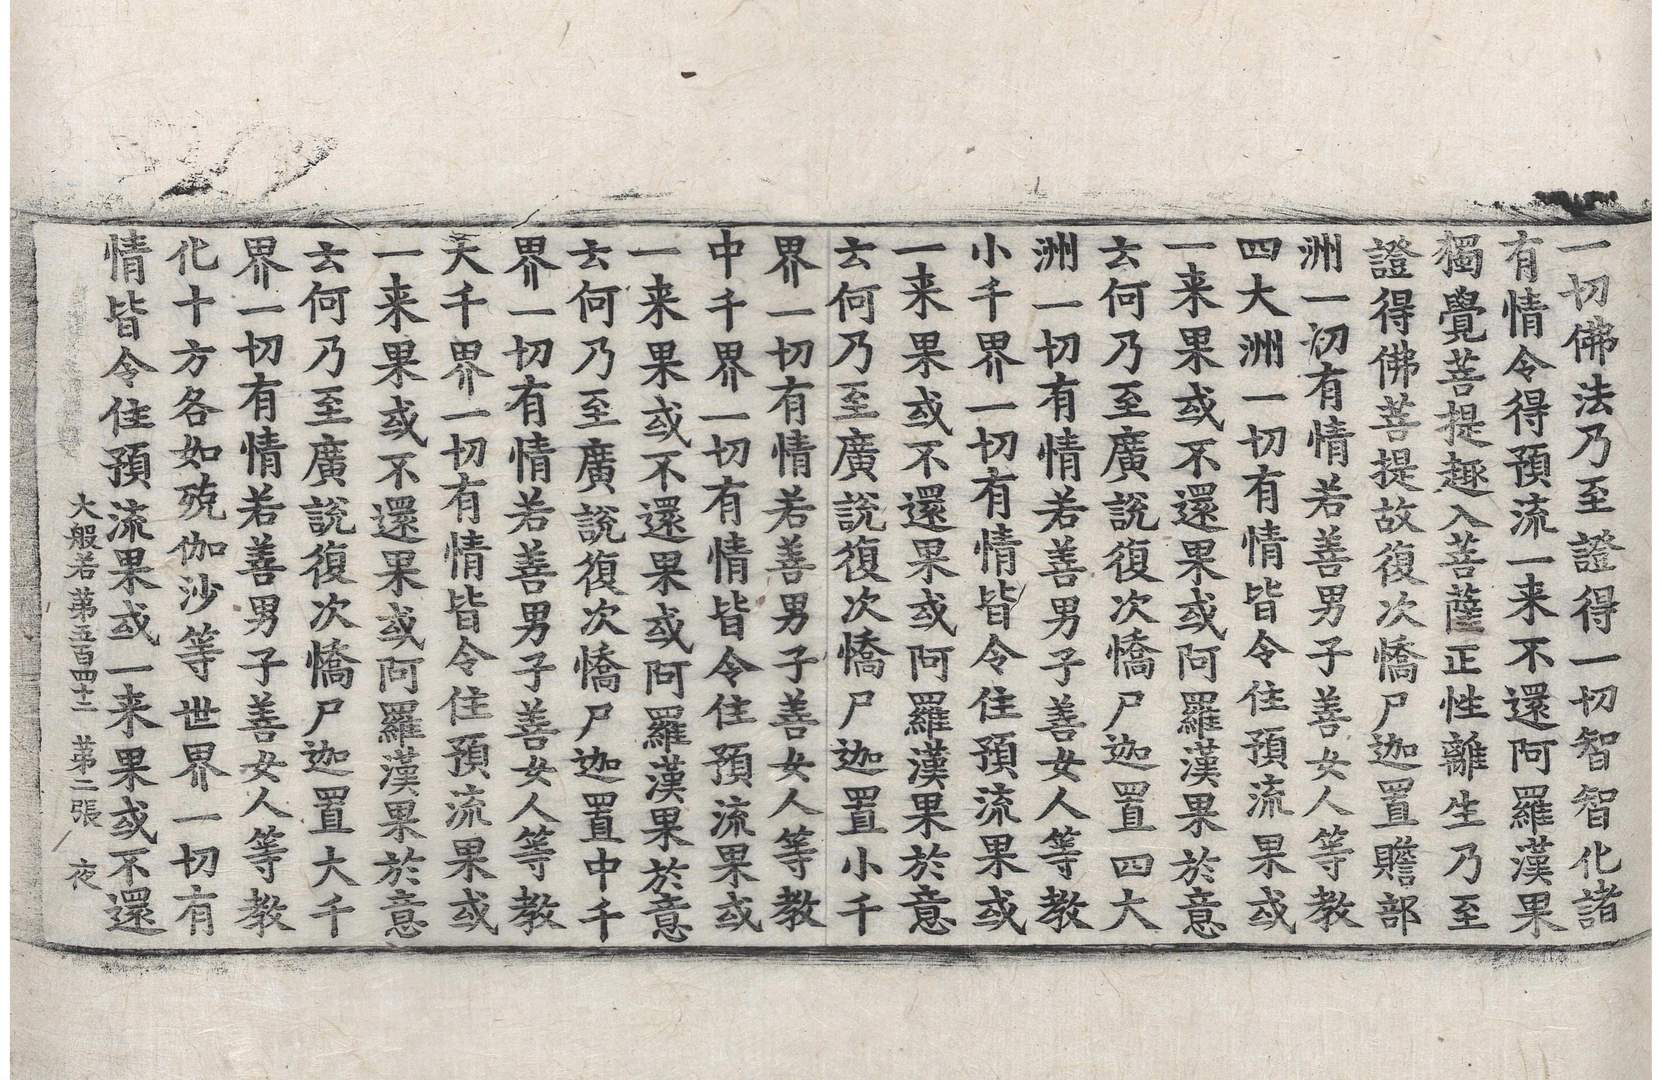 一切佛法乃至證得一切智智化諸
有情令得預流一来不還阿羅漢果
獨覺菩提趣入菩薩正性離生乃至
證得佛菩提故復次憍尸迦置贍部
洲一切有情若善男子善女人等教
四大洲一切有情皆令住預流果或
一来果或不還果或阿羅漢果於意
云何乃至廣說復次憍尸迦置四大
洲一切有情若善男子善女人等教
小千界一切有情皆令住預流果或
一来果或不還果或阿羅漢果於意
云何乃至廣說復次憍尸迦置小千
界一切有情若善男子善女人等教
中千界一切有情皆令住預流果或
一来果或不還果或阿羅漢果於意
云何乃至廣說復次憍尸迦置中千
界一切有情若善男子善女人等教
大千界一切有情皆令住預流果或
一来果或不還果或阿羅漢果於意
云何乃至廣說復次憍尸迦置大千
界一切有情若善男子善女人等教
化十方各如殑伽沙等世界一切有
情皆令住預流果或一来果或不還
大般若第五百四十二 第二張 夜